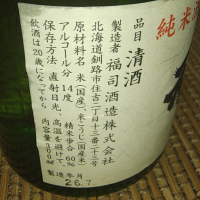 純米酒
品目 清酒
製造者 福司酒造株式会社
北海道釧路市住吉二丁目十三番二十三号
原材料名 米(国産)、米こうじ(国産米)
アルコール分 14度 精米歩合60%
保存方法 直射日光、高温を避けて
飲酒は20歳になってから 内容量300ml
製造年月
26.7